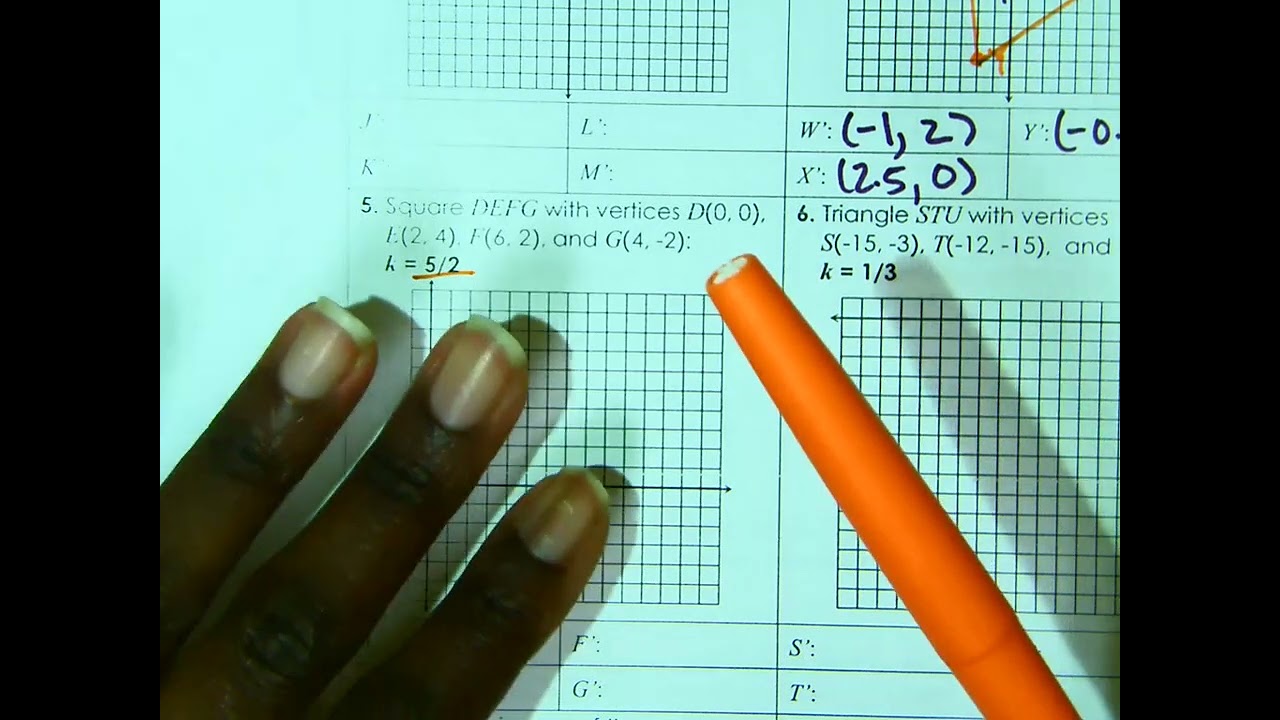 J': L': W': (-1, 2) Y': (-0.
K': M': X': (2.5, 0)
5. Square DEFG with vertices D(0, 0),
E(2, 4), F(6, 2), and G(4, -2):
k = 5/2
6. Triangle STU with vertices
S(-15, -3), T(-12, -15), and
k = 1/3
F': S':
G': T':